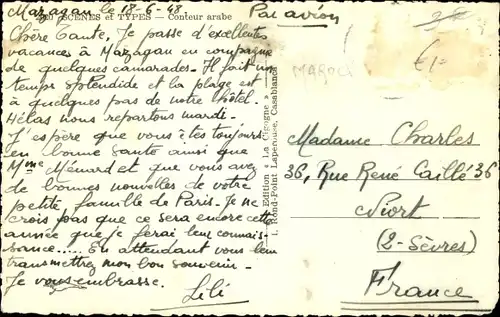 Mazagan le 18-6-48 Par avion
SCÈNES et TYPES — Conteur arabe
Chère Tante, Je passe d'excellentes
vacances à Mazagan en compagnie
de quelques camarades - Il fait un
temps splendide et la plage est
à quelques pas de notre hôtel.
Hélas nous repartons mardi -
J'espère que vous êtes toujours
en bonne santé ainsi que
Mme Ménard et que vous avez
de bonnes nouvelles de votre
petite famille de Paris - Je ne
crois pas que ce sera encore cette
année que je ferai leur connais-
sance..... En attendant vous leur
transmettrez mon bon souvenir -
Je vous embrasse.
Lili
Edition « La Cigogne »
1, Rond-Point Lapérouse, Casablanca
MAROC
Madame Charles
36, Rue René Caillé 36
Niort
(2-Sèvres)
France